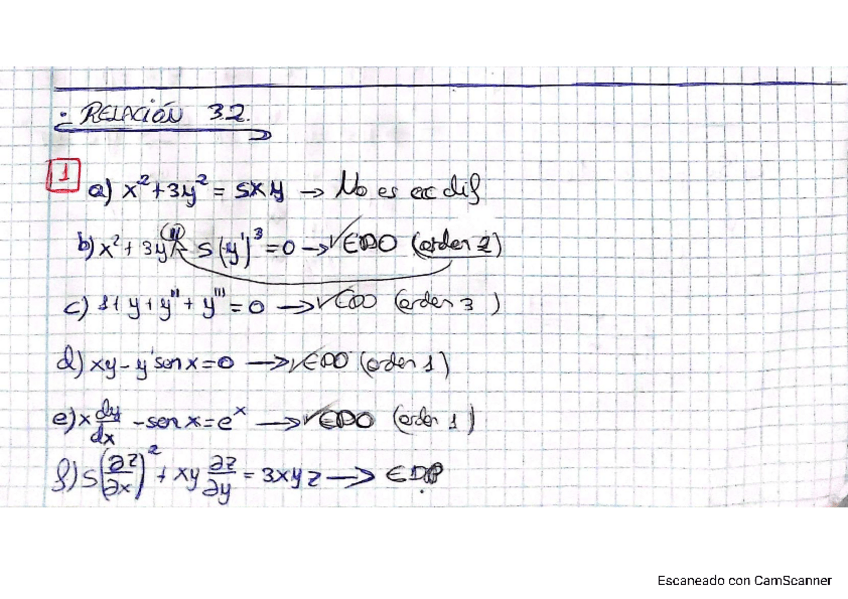 · RELACIÓN 3.2.
1
a) x² + 3y² = 5xy → No es ec dif
b) x² + 3y'' - 5(y')³ = 0 → ✓ EDO (orden 2)
c) 1 + y + y'' + y''' = 0 → ✓ EDO (orden 3)
d) xy - y' sen x = 0 → ✓ EDO (orden 1)
e) x dy/dx - sen x = eˣ → ✓ EDO (orden 1)
f) 5(∂z/∂x)² + xy ∂z/∂y = 3xyz → EDP
Escaneado con CamScanner